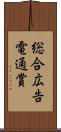 総合広告
電通賞